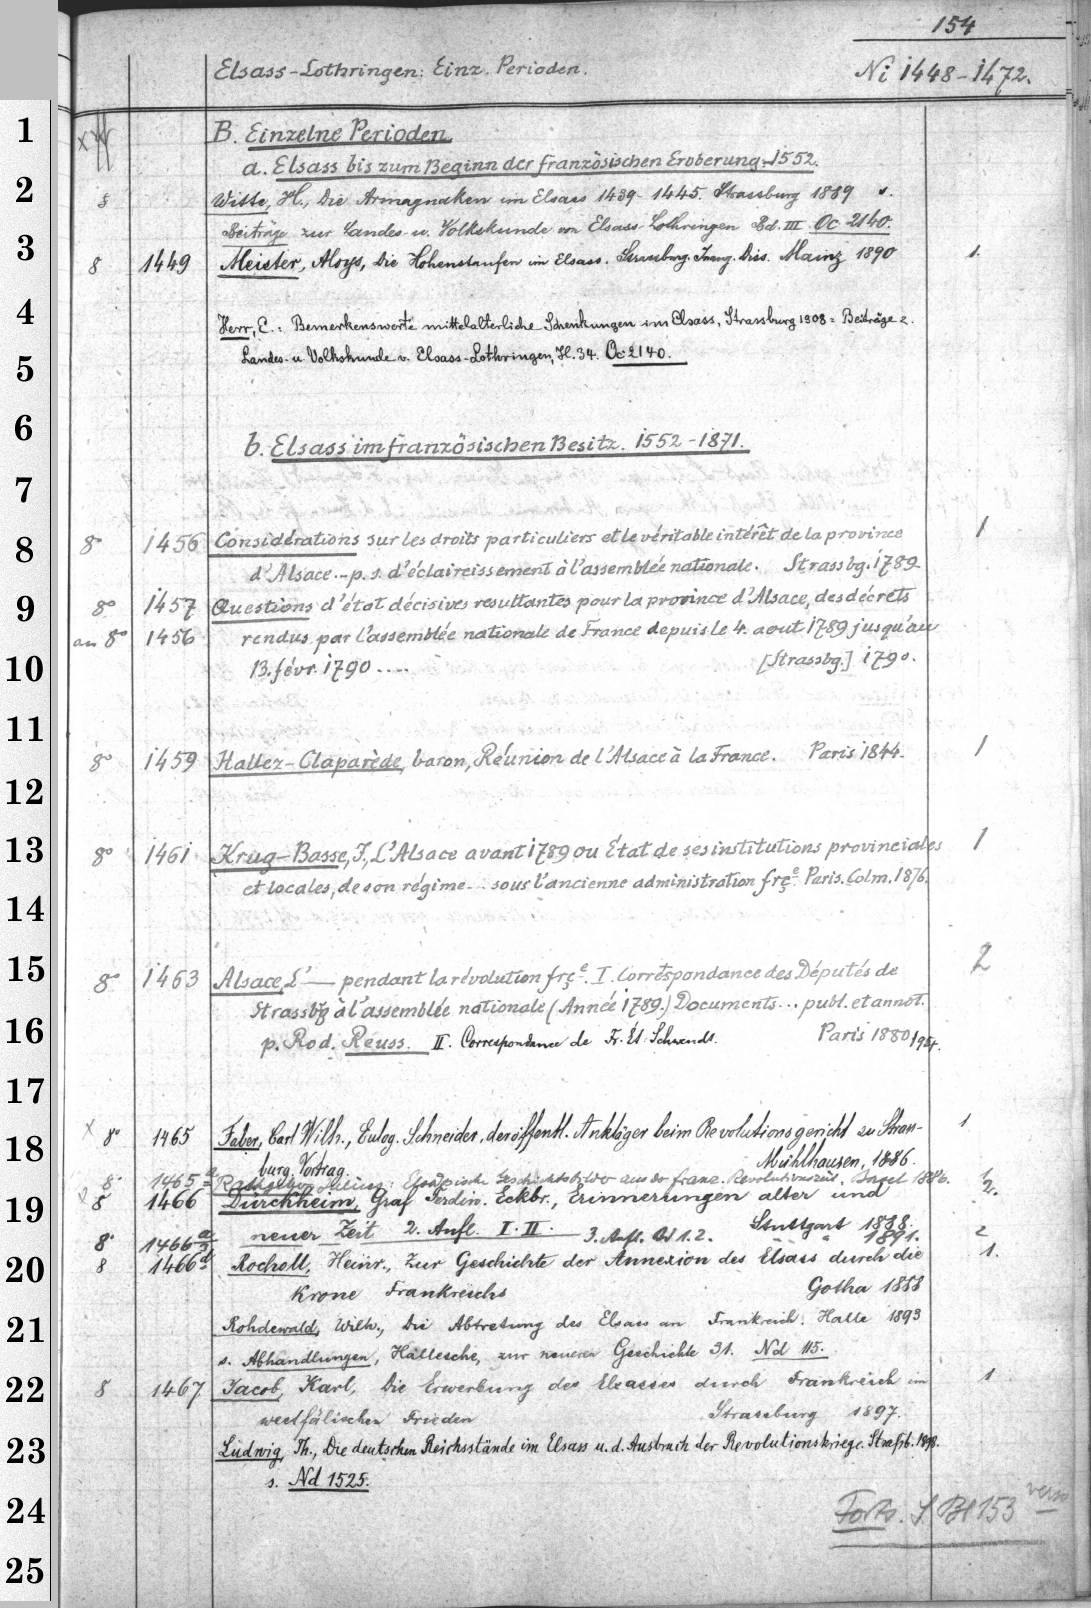 154
Elsass-Lothringen: Einz. Perioden.
Ni 1448-1472.
1
B. Einzelne Perioden.
a. Elsass bis zum Beginn der französischen Eroberung. -1552.
2
8 Witte, H., Die Armagnaken im Elsass 1439-1445. Strassburg 1889 s.
Beiträge zur Landes- u. Volkskunde von Elsass-Lothringen Bd. III Oc 2140.
3
8 1449 Meister, Aloys, Die Hohenstaufen im Elsass. Strassburg. Inaug. Diss. Mainz 1890 1.
4
Herr, E.: Bemerkenswerte mittelalterliche Schenkungen im Elsass, Strassburg 1908 = Beiträge z.
Landes- u. Volkskunde v. Elsass-Lothringen, H. 34. Oc 2140.
5
6
b. Elsass im französischen Besitz. 1552-1871.
7
8
8° 1456 Considérations sur les droits particuliers et le véritable intérêt de la province 1
d'Alsace.- p. s. d'éclaircissement à l'assemblée nationale. Strassbg. 1789
9
8° 1457 Questions d'état décisives resultantes pour la province d'Alsace, des décrets
an 8° 1456 rendus par l'assemblée nationale de France depuis le 4. aout 1789 jusqu'au
10
13. févr. 1790 .... [Strassbg.] 1790.
11
8° 1459 Hallez-Claparède, baron, Réunion de l'Alsace à la France. Paris 1844. 1
12
13
8° 1461 Krug-Basse, J., L'Alsace avant 1789 ou État de ses institutions provinciales 1
et locales, de son régime... sous l'ancienne administration frçe. Paris. Colm. 1876.
14
15
8° 1463 Alsace, L' — pendant la révolution frçe. I. Correspondance des Députés de 2
Strassbg à l'assemblée nationale (Année 1789.) Documents... publ. et annot.
16
p. Rod. Reuss. II. Correspondance de Fr. Ét. Schwendt. Paris 1880
17
x 8° 1465 Faber, Carl Wilh., Eulog. Schneider, der öffentl. Ankläger beim Revolutionsgericht zu Strass- 1
18
burg. Vortrag. Mühlhausen, 1886.
8° 1465a Julius: Geschichtsbilder aus der franz. Revolutionszeit. Basel 1886. 1.
19
x 8 1466 Dürckheim, Graf Ferdin. Eckbr., Erinnerungen alter und 2.
neuer Zeit 2. Aufl. I. II. Stuttgart 1888.
8° 1466a 3. Aufl. Bd 1. 2. " " 1891. 2
20
8 1466d Rocholl, Heinr., Zur Geschichte der Annexion des Elsass durch die 1.
Krone Frankreichs Gotha 1888
21
Rohdewald, Wilh., Die Abtretung des Elsass an Frankreich. Halle 1893
s. Abhandlungen, Hallesche, zur neueren Geschichte 31. Nd 115.
22
8 1467 Jacob, Karl, Die Erwerbung des Elsasses durch Frankreich im 1
westfälischen Frieden Strassburg 1897.
23
Ludwig, Th., Die deutschen Reichsstände im Elsass u. d. Ausbruch der Revolutionskriege. Straßb. 1898.
s. Nd 1525.
24
Forts. S. Bl 153 verso
25